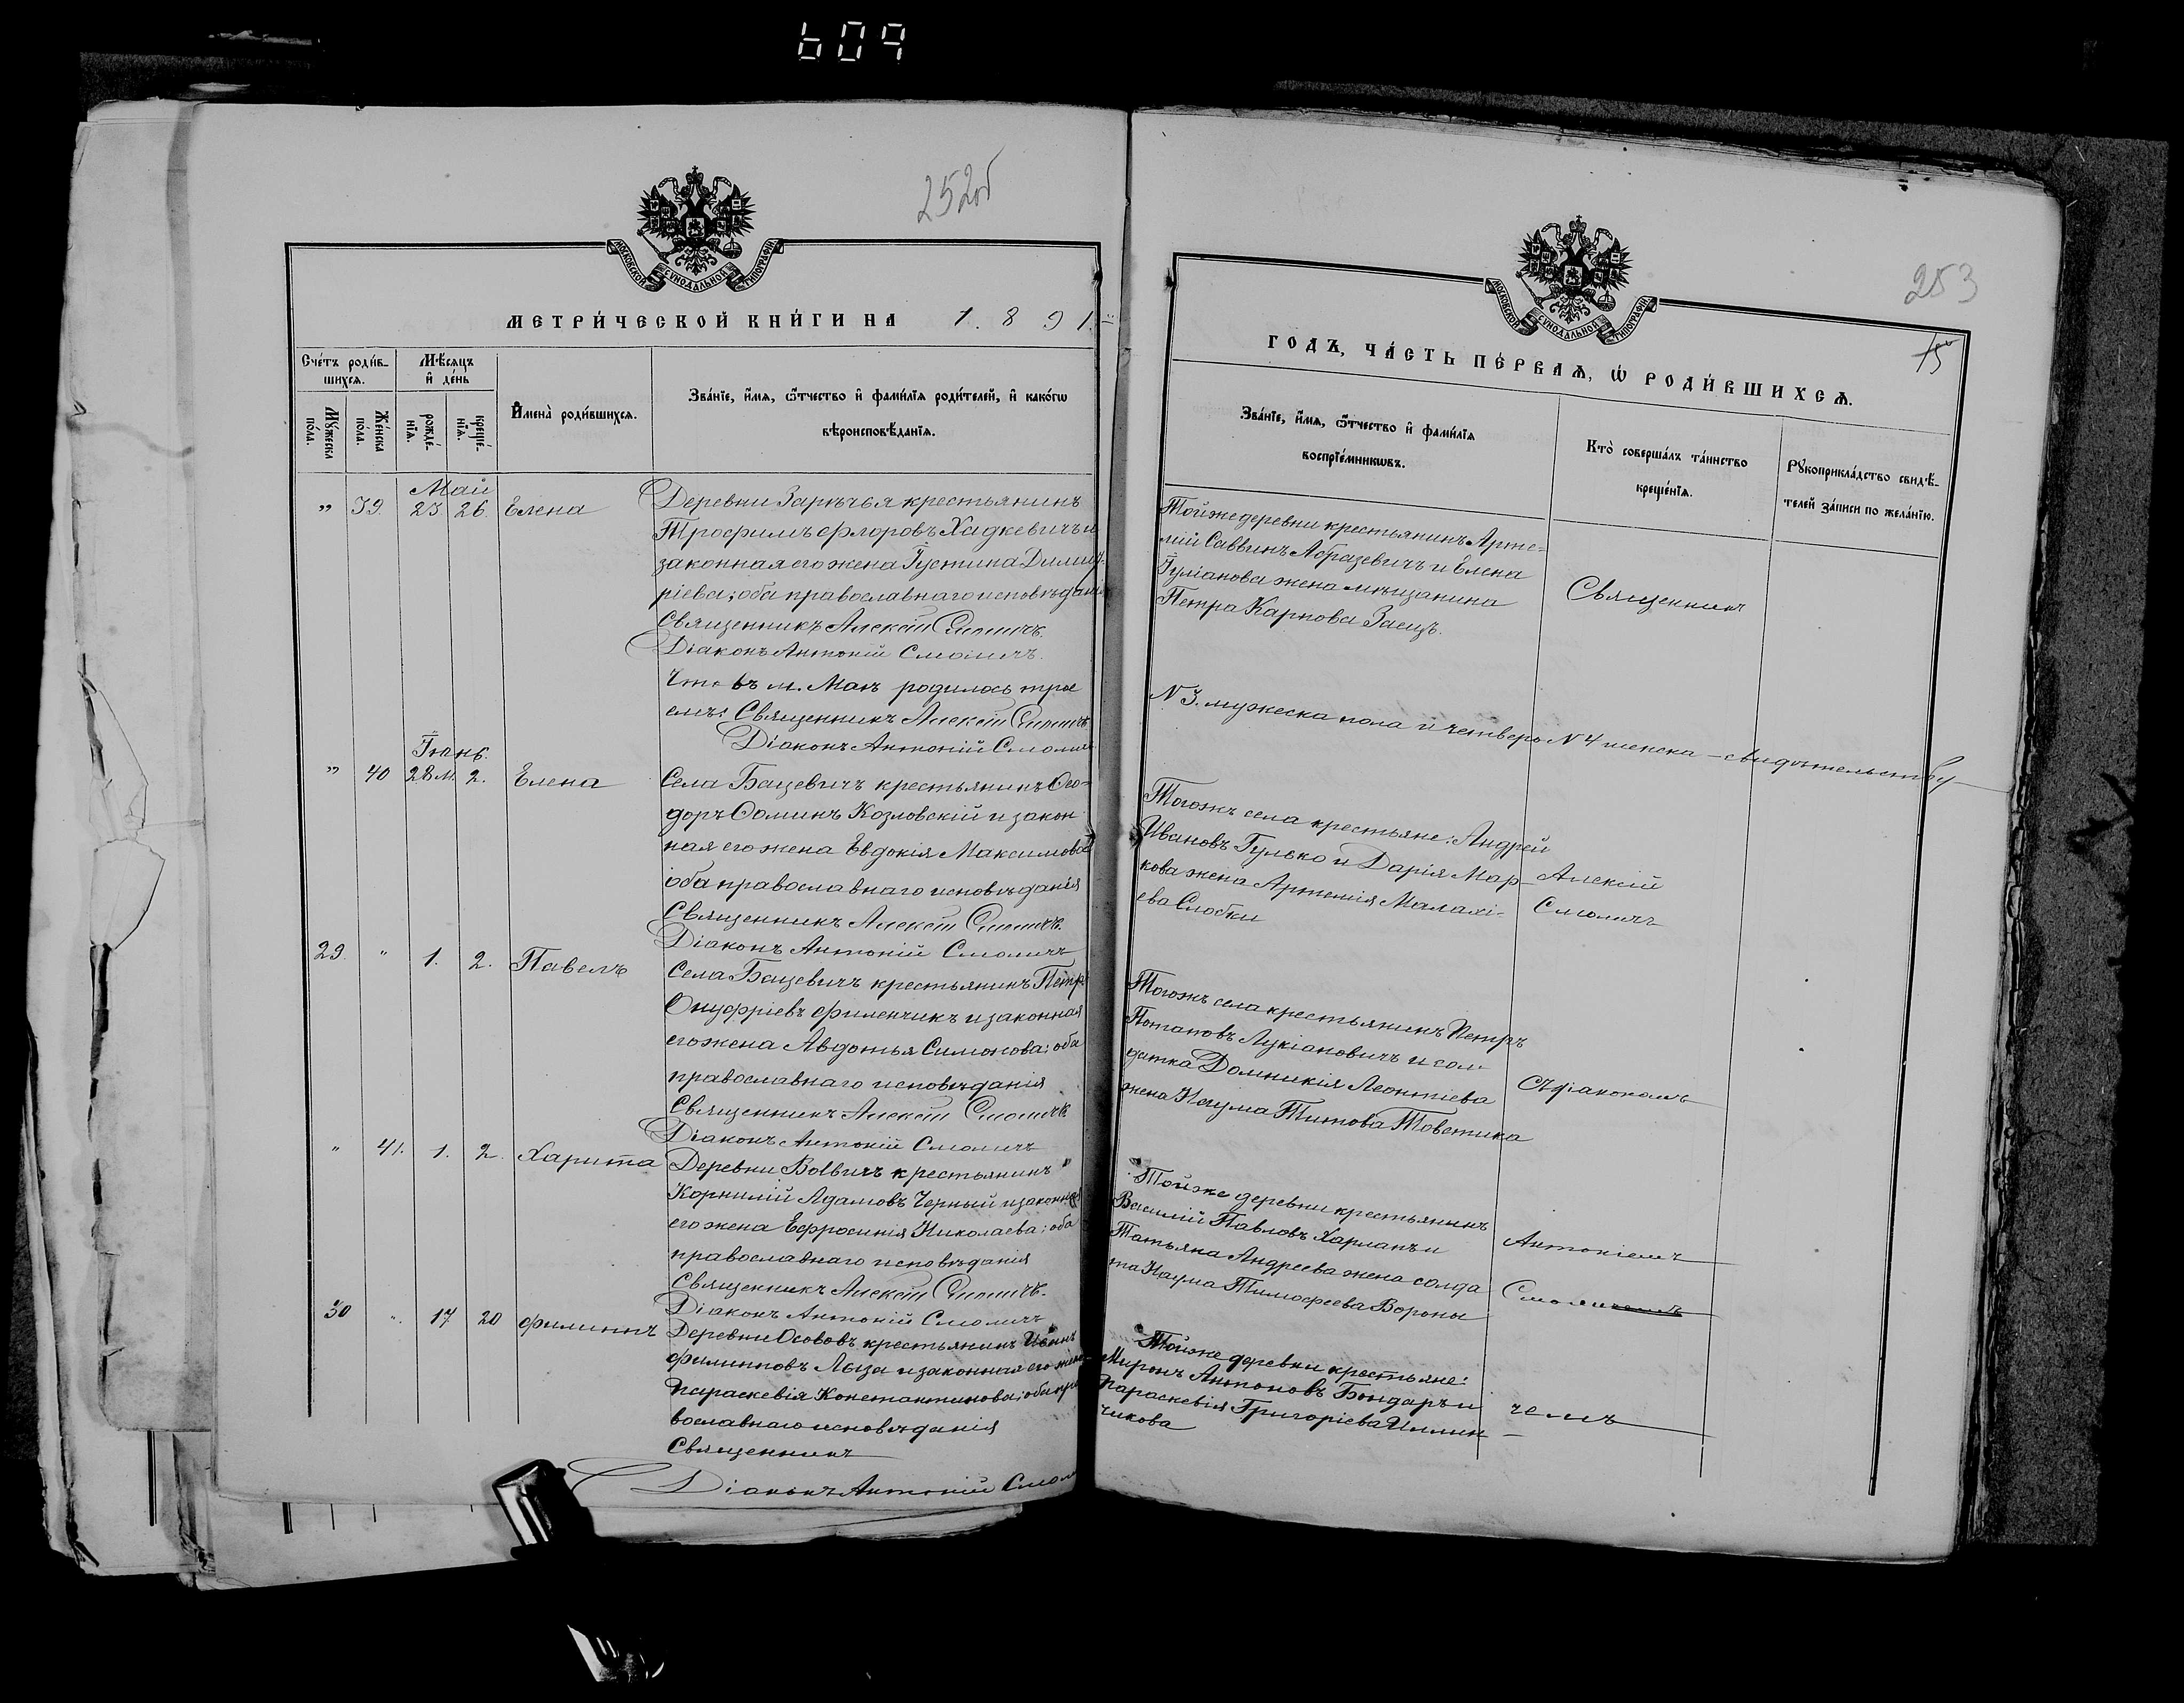 609
252об
МОСКОВСКОЙ СУНОДАЛЬНОЙ ТИПОГРАФІИ
МЕТРИ́ЧЕСКОЙ КНИ́ГИ НА 1891
Сче́тъ роди́в-
шихсѧ.
Мѣ́сѧцъ
и҆ де́нь
Мꙋжеска
по́ла.
Же́нска
по́ла.
рожде́-
нїѧ.
креще́-
нїѧ.
И҆мена̀ роди́вшихсѧ.
Зва́нїе, и҆́мѧ, ѻ҆́тчество и҆ фами́лїѧ роди́телей, и҆ како́гѡ
вѣроисповѣ́данїѧ.
Май
" 39. 23 26. Елена
Деревни Зарѣчья крестьянинъ
Трофимъ Флоровъ Хадкевичъ и
законная его жена Іустина Дими-
ріева; оба православнаго исповѣданія
Священникъ Алексій Смоличъ.
Діаконъ Антоній Смоличъ.
Что въ м. Маѣ родилось трое
емъ: Священникъ Алексій Смоличъ
Діаконъ Антоній Смоличъ
Іюнь.
" 40 28 м. 2. Елена
Села Бацевичъ крестьянинъ Ѳео-
доръ Ѳоминъ Козловскій и закон
ная его жена Евдокія Максимова
оба православнаго исповѣданія
Священникъ Алексій Смоличъ.
Діаконъ Антоній Смоличъ
29. " 1. 2. Павелъ
Села Бацевичъ крестьянинъ Петръ
Онуфріевъ Филенчикъ и законная
его жена Авдотья Симонова; оба
православнаго исповѣданія
Священникъ Алексій Смоличъ
Діаконъ Антоній Смоличъ
" 41. 1. 2. Харита
Деревни крестьянинъ
Корнилій Адамовъ Черный и законная
его жена Ефросинія Николаева; оба
православнаго исповѣданія
Священникъ Алексій Смоличъ.
Діаконъ Антоній Смоличъ
30 " 17 20 Филиппъ
Деревни Осововъ крестьянинъ Иванъ
Филипповъ и законная его жена
Параскевія Константинова; оба пра
вославнаго исповѣданія
Священникъ
Діаконъ Антоній Смол
253
МОСКОВСКОЙ СУНОДАЛЬНОЙ ТИПОГРАФІИ
ГОДЪ, ЧА́СТЬ ПЕ́РВАѦ, Ѡ҆ РОДИ́ВШИХСѦ.
15
Зва́нїе, и҆́мѧ, ѻ҆́тчество и҆ фами́лїѧ
воспрїе́мникѡвъ.
Кто̀ соверша́лъ та́инство
креще́нїѧ.
Рꙋкоприкла́дство свидѣ́-
телей за́писи по жела́нїю.
Той же деревни крестьянинъ Арте-
мій Саввинъ Абразевичъ и Елена
Іуліанова жена мѣщанина
Петра Карпова Заецъ.
Священникъ
N 3. мужеска пола и четверо N 4 женска - свидѣтельству
Тогожъ села крестьяне: Андрей
Ивановъ Гулько и Дарія Мар-
кова жена Артемія Малахі-
ева
Алексій
Смоличъ
Тогожъ села крестьянинъ Петръ
Потаповъ Лукіановичъ и сол-
датка Домникія Леонтіева
жена Наума Титова Товстика
Съ діакономъ
Той же деревни крестьянинъ
Василій Павловъ Харланъ и
Татьяна Андреева жена солда
та Наума Тимофеева Вороны
Антоніемъ
Смоличемъ
Той же деревни крестьяне:
Миронъ Антоновъ Бондарь и
Параскевія Григоріева
чикова
чемъ